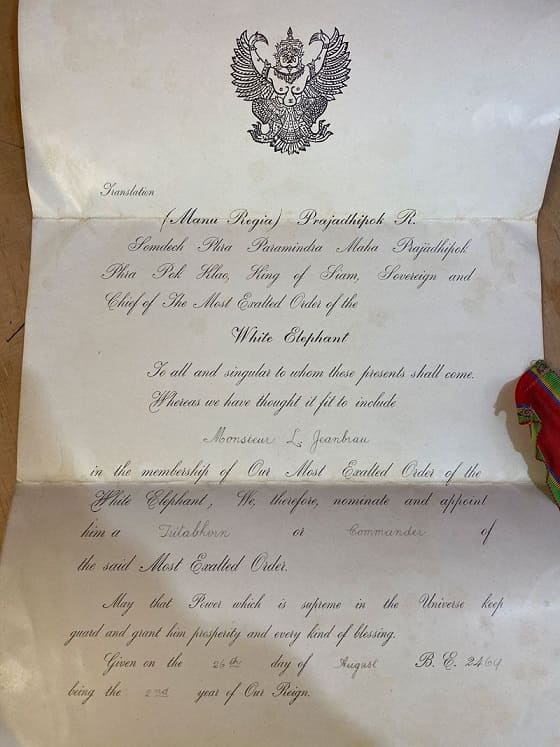 Translation
(Manu Regia) Prajadhipok R.
Somdech Phra Paramindra Maha Prajadhipok
Phra Pok Klao, King of Siam, Sovereign and
Chief of The Most Exalted Order of the
White Elephant
To all and singular to whom these presents shall come.
Whereas we have thought it fit to include
Monsieur L. Jeanbrau
in the membership of Our Most Exalted Order of the
White Elephant, We, therefore, nominate and appoint
him a Tritabhorn or Commander of
the said Most Exalted Order.
May that Power which is supreme in the Universe keep
guard and grant him prosperity and every kind of blessing.
Given on the 26th day of August B. E.
being the 2nd year of Our Reign.